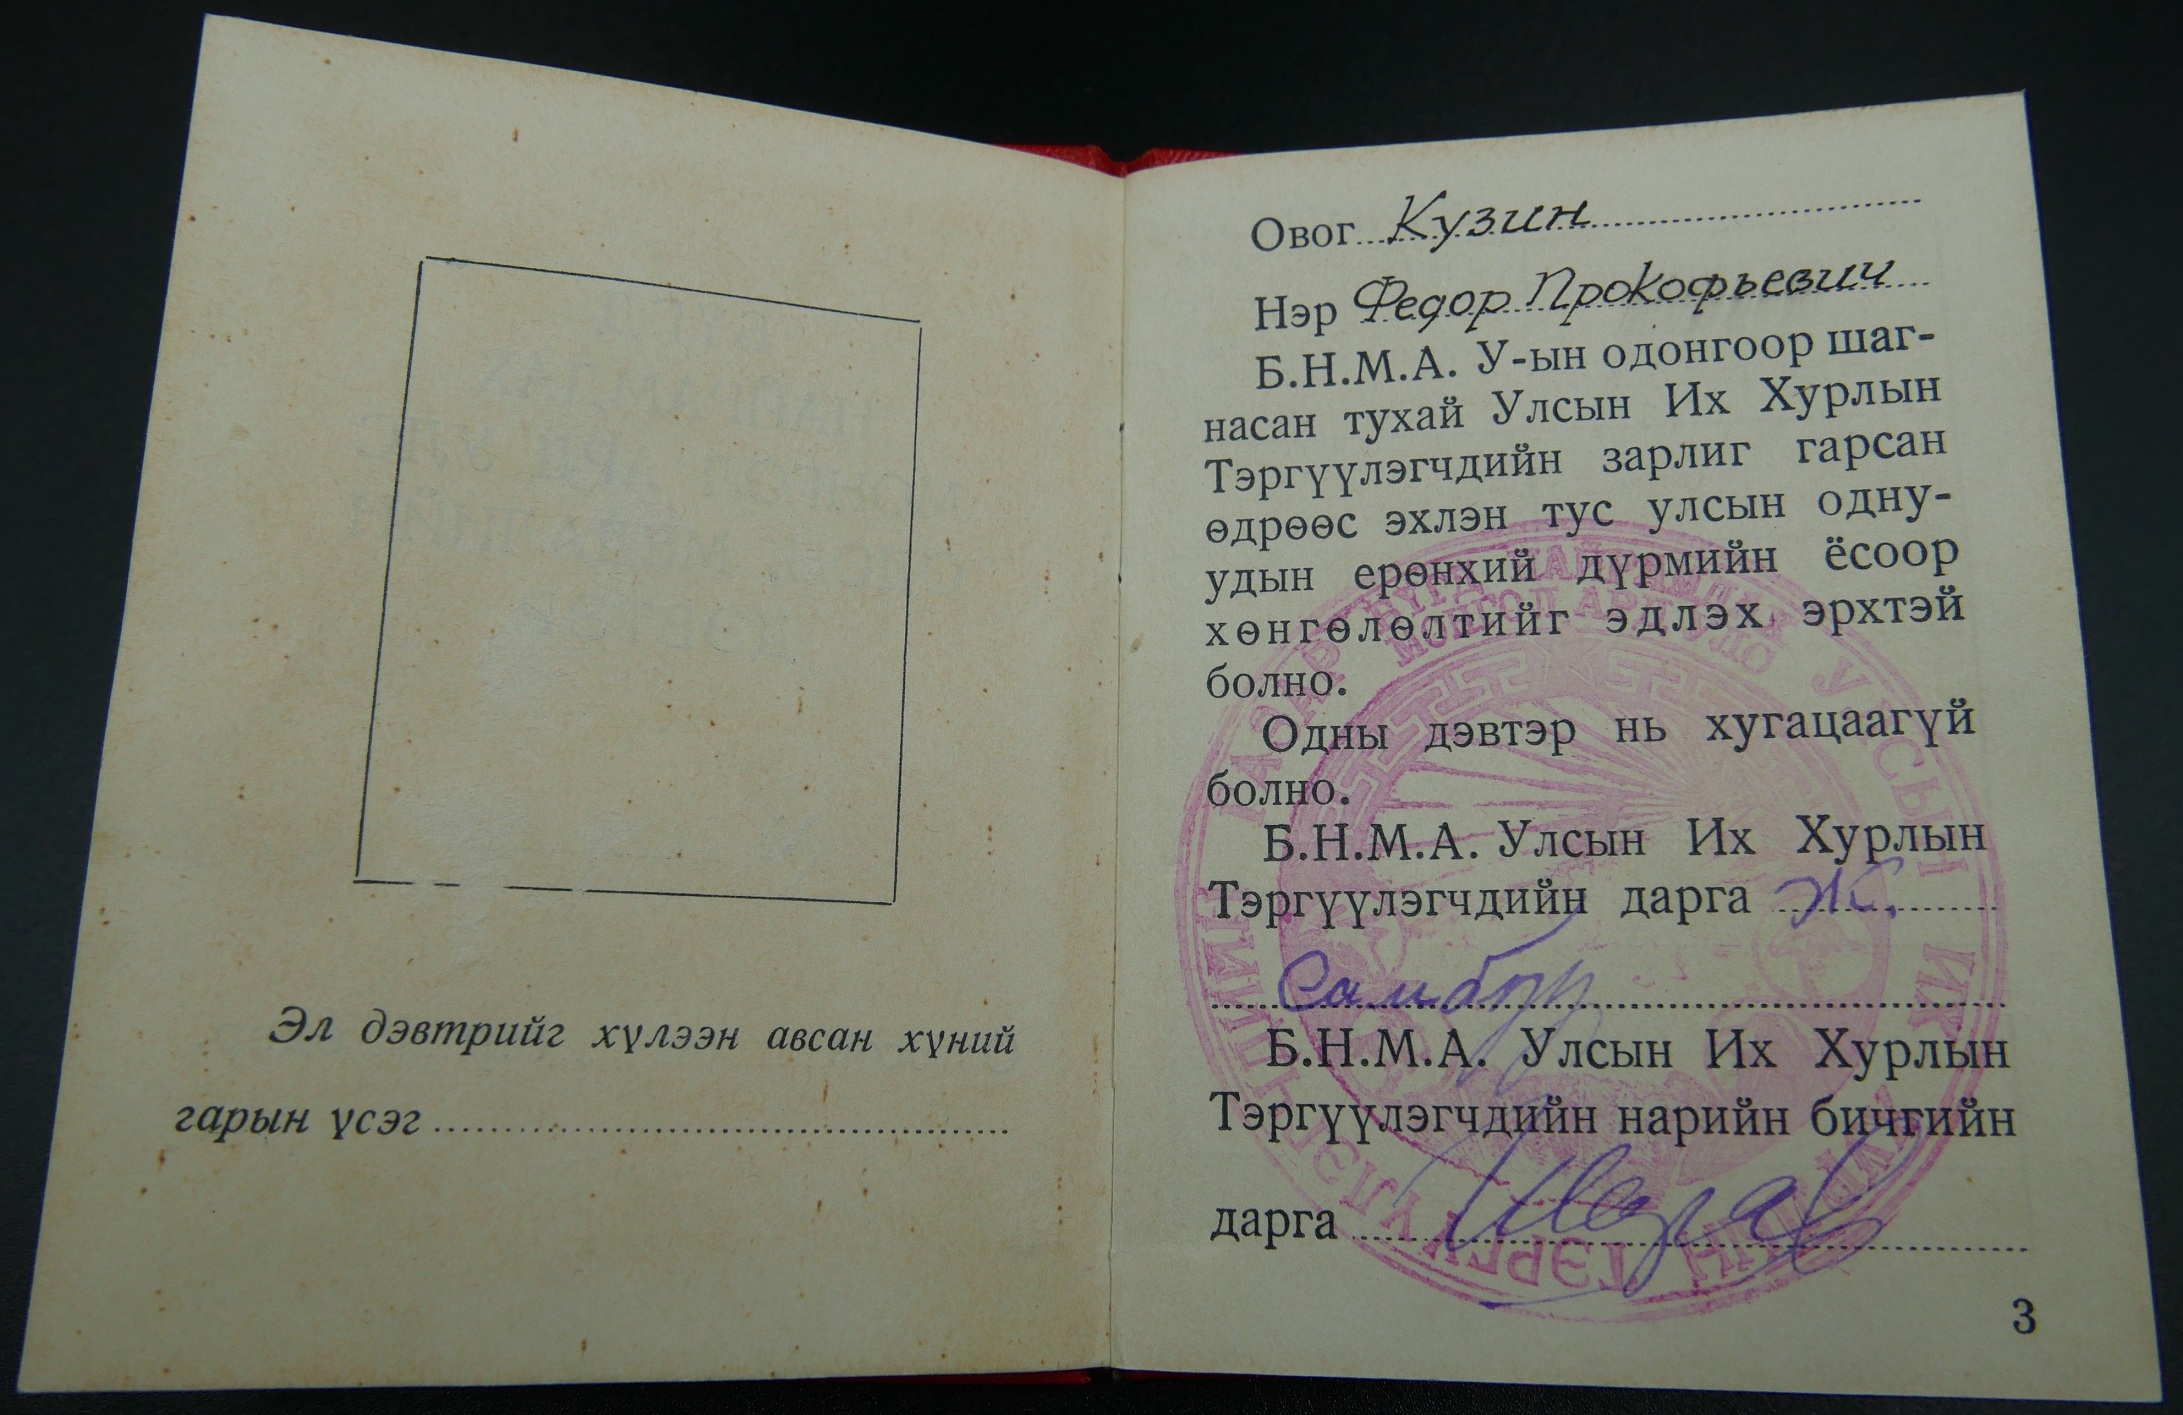 Эл дэвтрийг хүлээн авсан хүний
гарын үсэг
Овог Кузин
Нэр Федор Прокофьевич
Б.Н.М.А. У-ын одонгоор шаг-
насан тухай Улсын Их Хурлын
Тэргүүлэгчдийн зарлиг гарсан
өдрөөс эхлэн тус улсын одну-
удын ерөнхий дүрмийн ёсоор
хөнгөлөлтийг эдлэх эрхтэй
болно.
Одны дэвтэр нь хугацаагүй
болно.
Б.Н.М.А. Улсын Их Хурлын
Тэргүүлэгчдийн дарга Ж.
Самбуу
Б.Н.М.А. Улсын Их Хурлын
Тэргүүлэгчдийн нарийн бичгийн
дарга
3